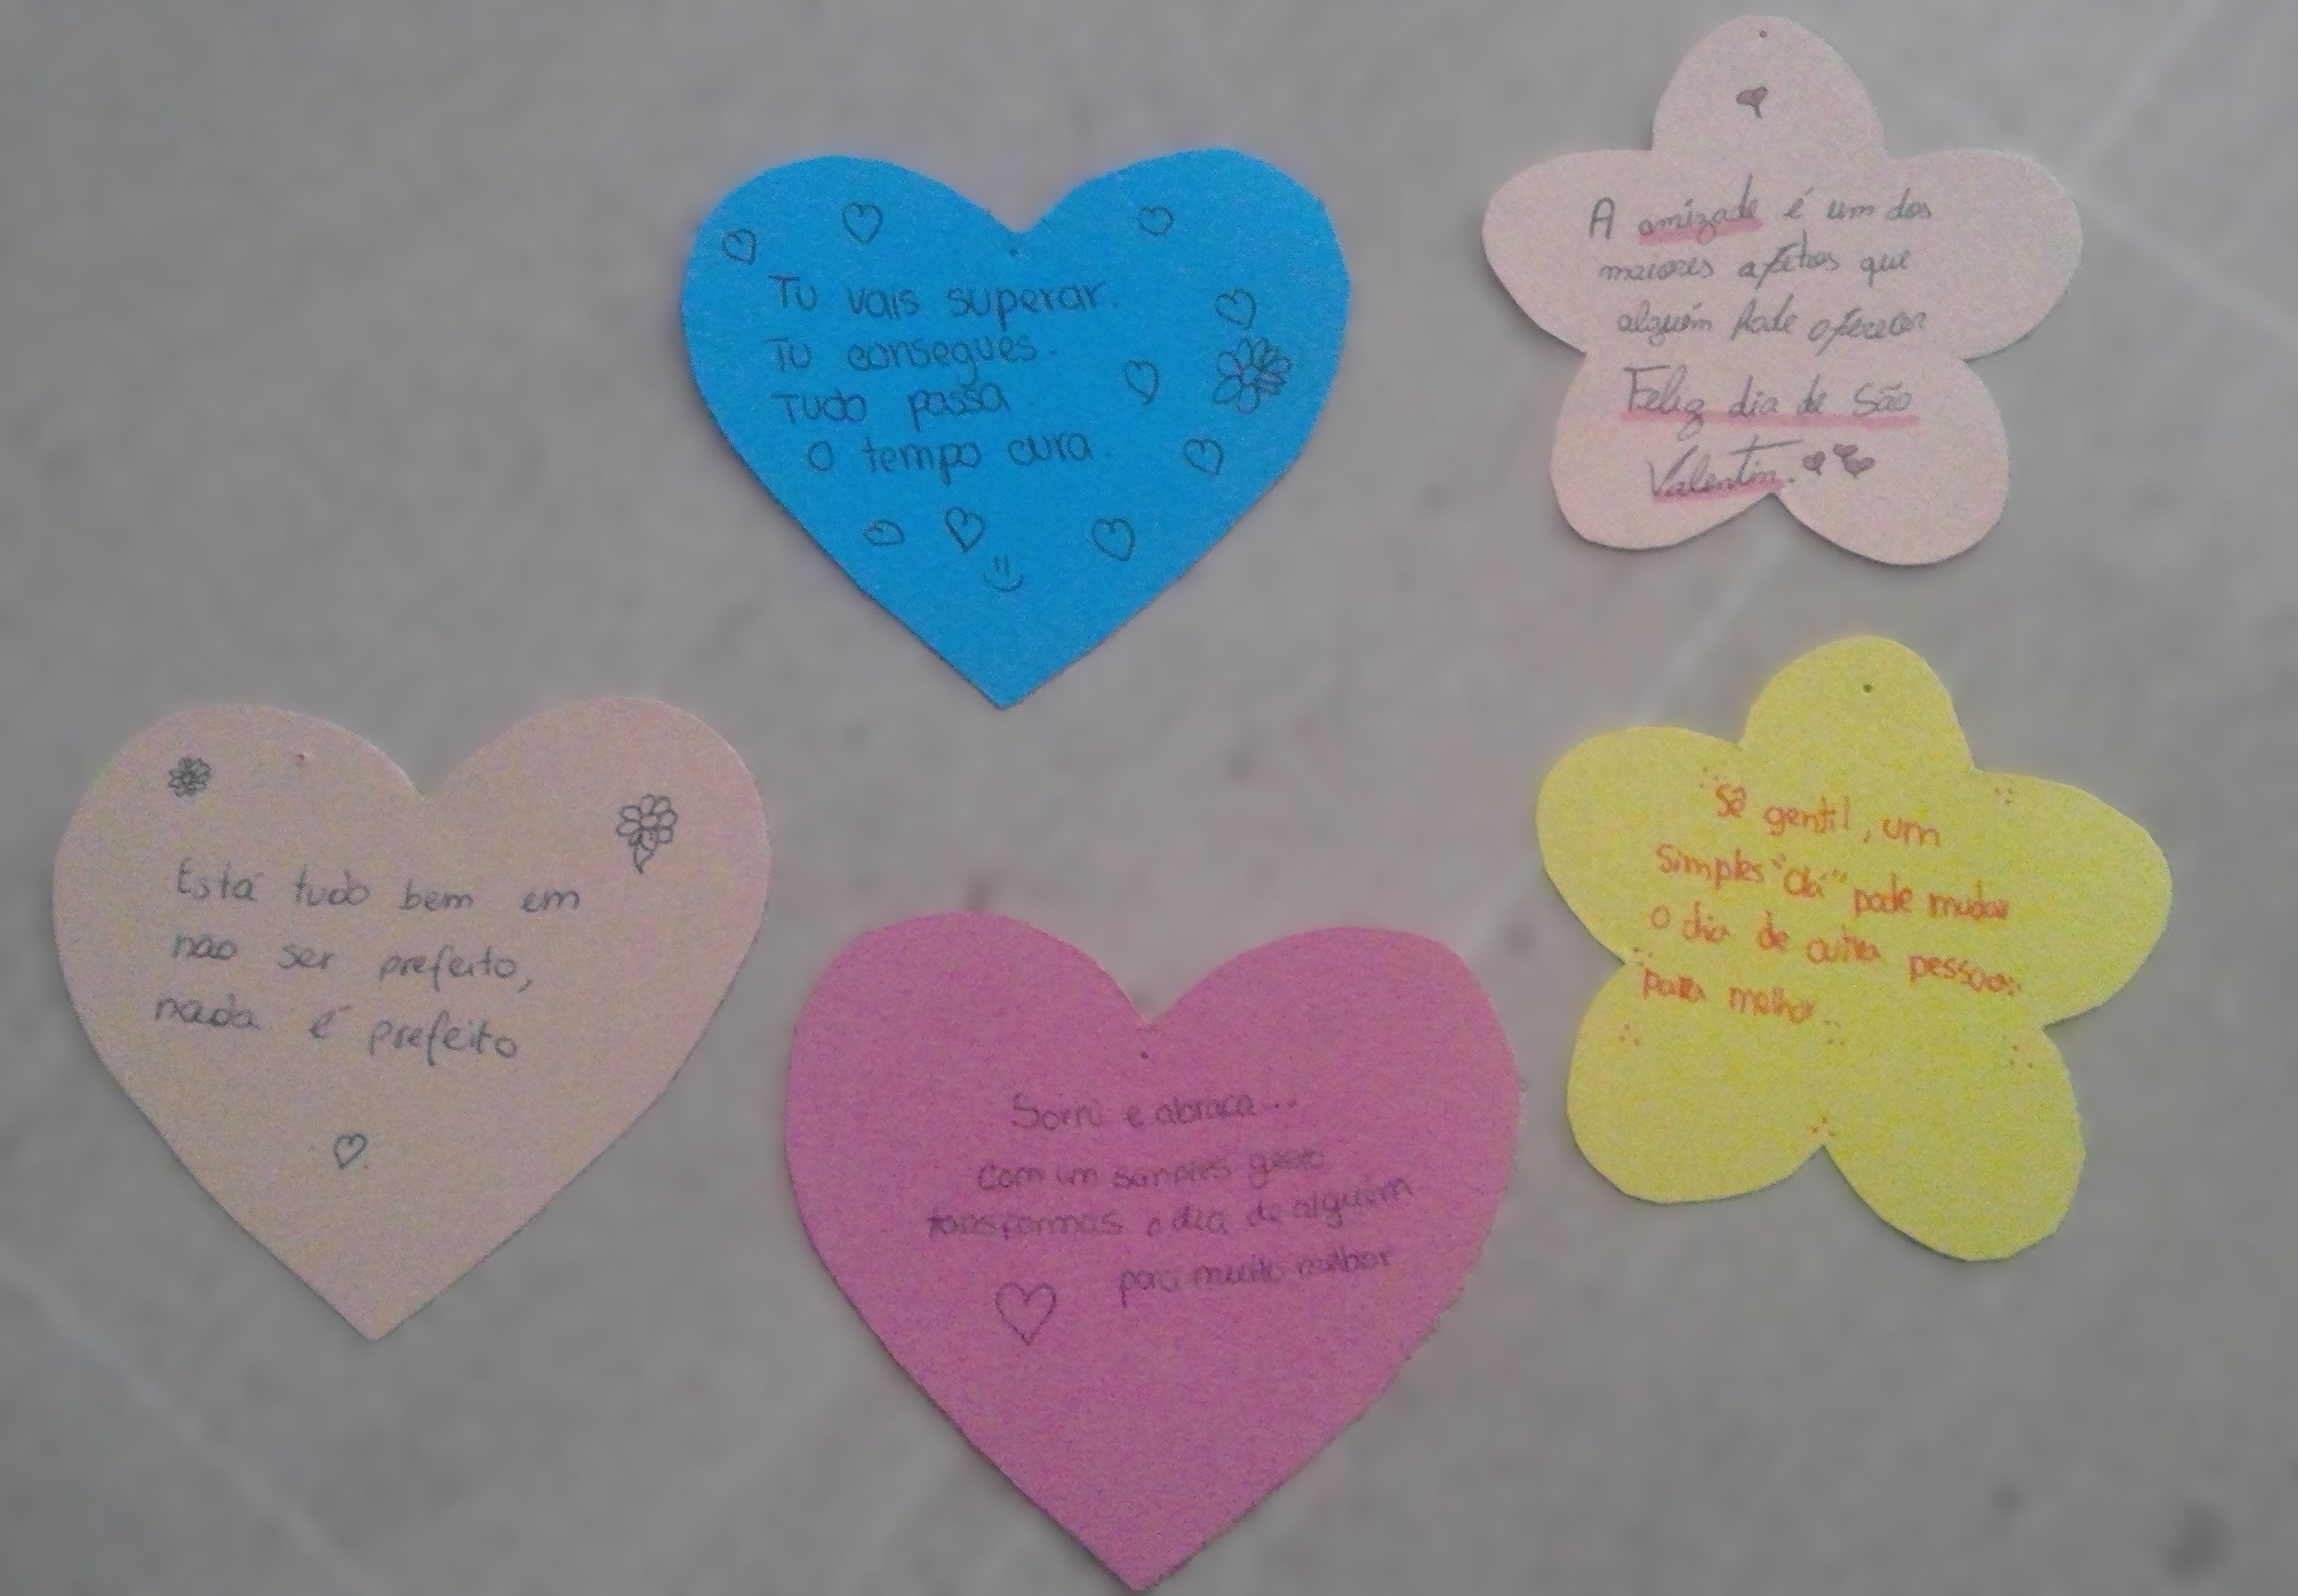 Tu vais superar.
Tu consegues.
Tudo passa.
O tempo cura.
A amizade é um dos
maiores afetos que
alguém pode oferecer
Feliz dia de São
Valentin.
Está tudo bem em
não ser prefeito,
nada é prefeito
Sorri e abraça...
Com um simples gesto
transformas o dia de alguém
para muito melhor
Sê gentil, um
simples "olá" pode mudar
o dia de outra pessoa
para melhor